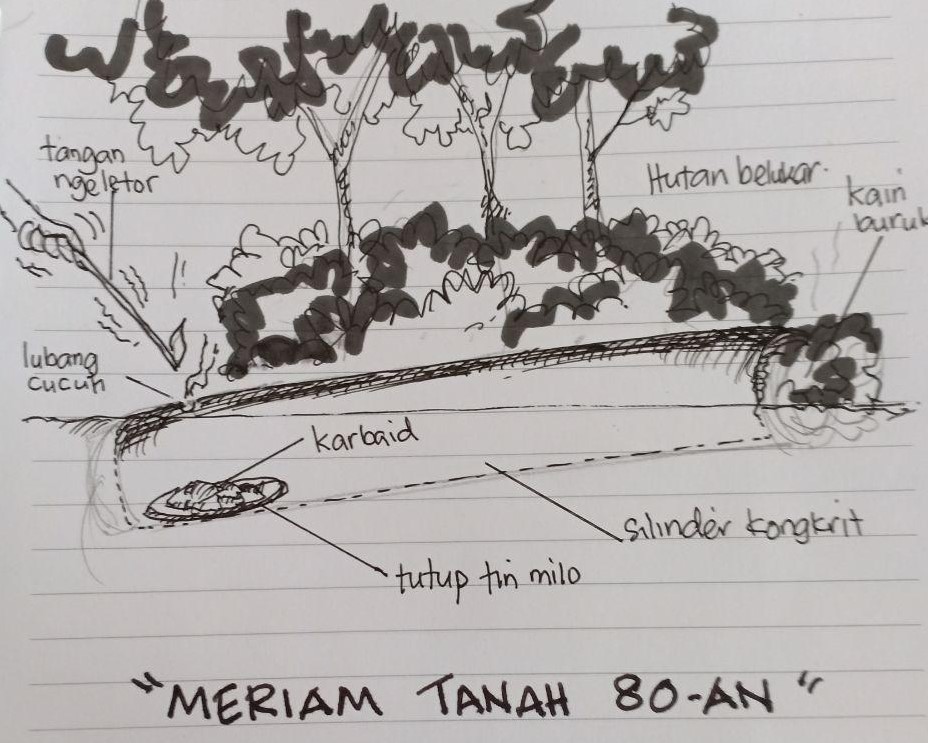 tangan
ngeletor
Hutan belukar.
kain
buruk
lubang
cucuh
karbaid
silinder kongkrit
tutup tin milo
"MERIAM TANAH 80-AN"